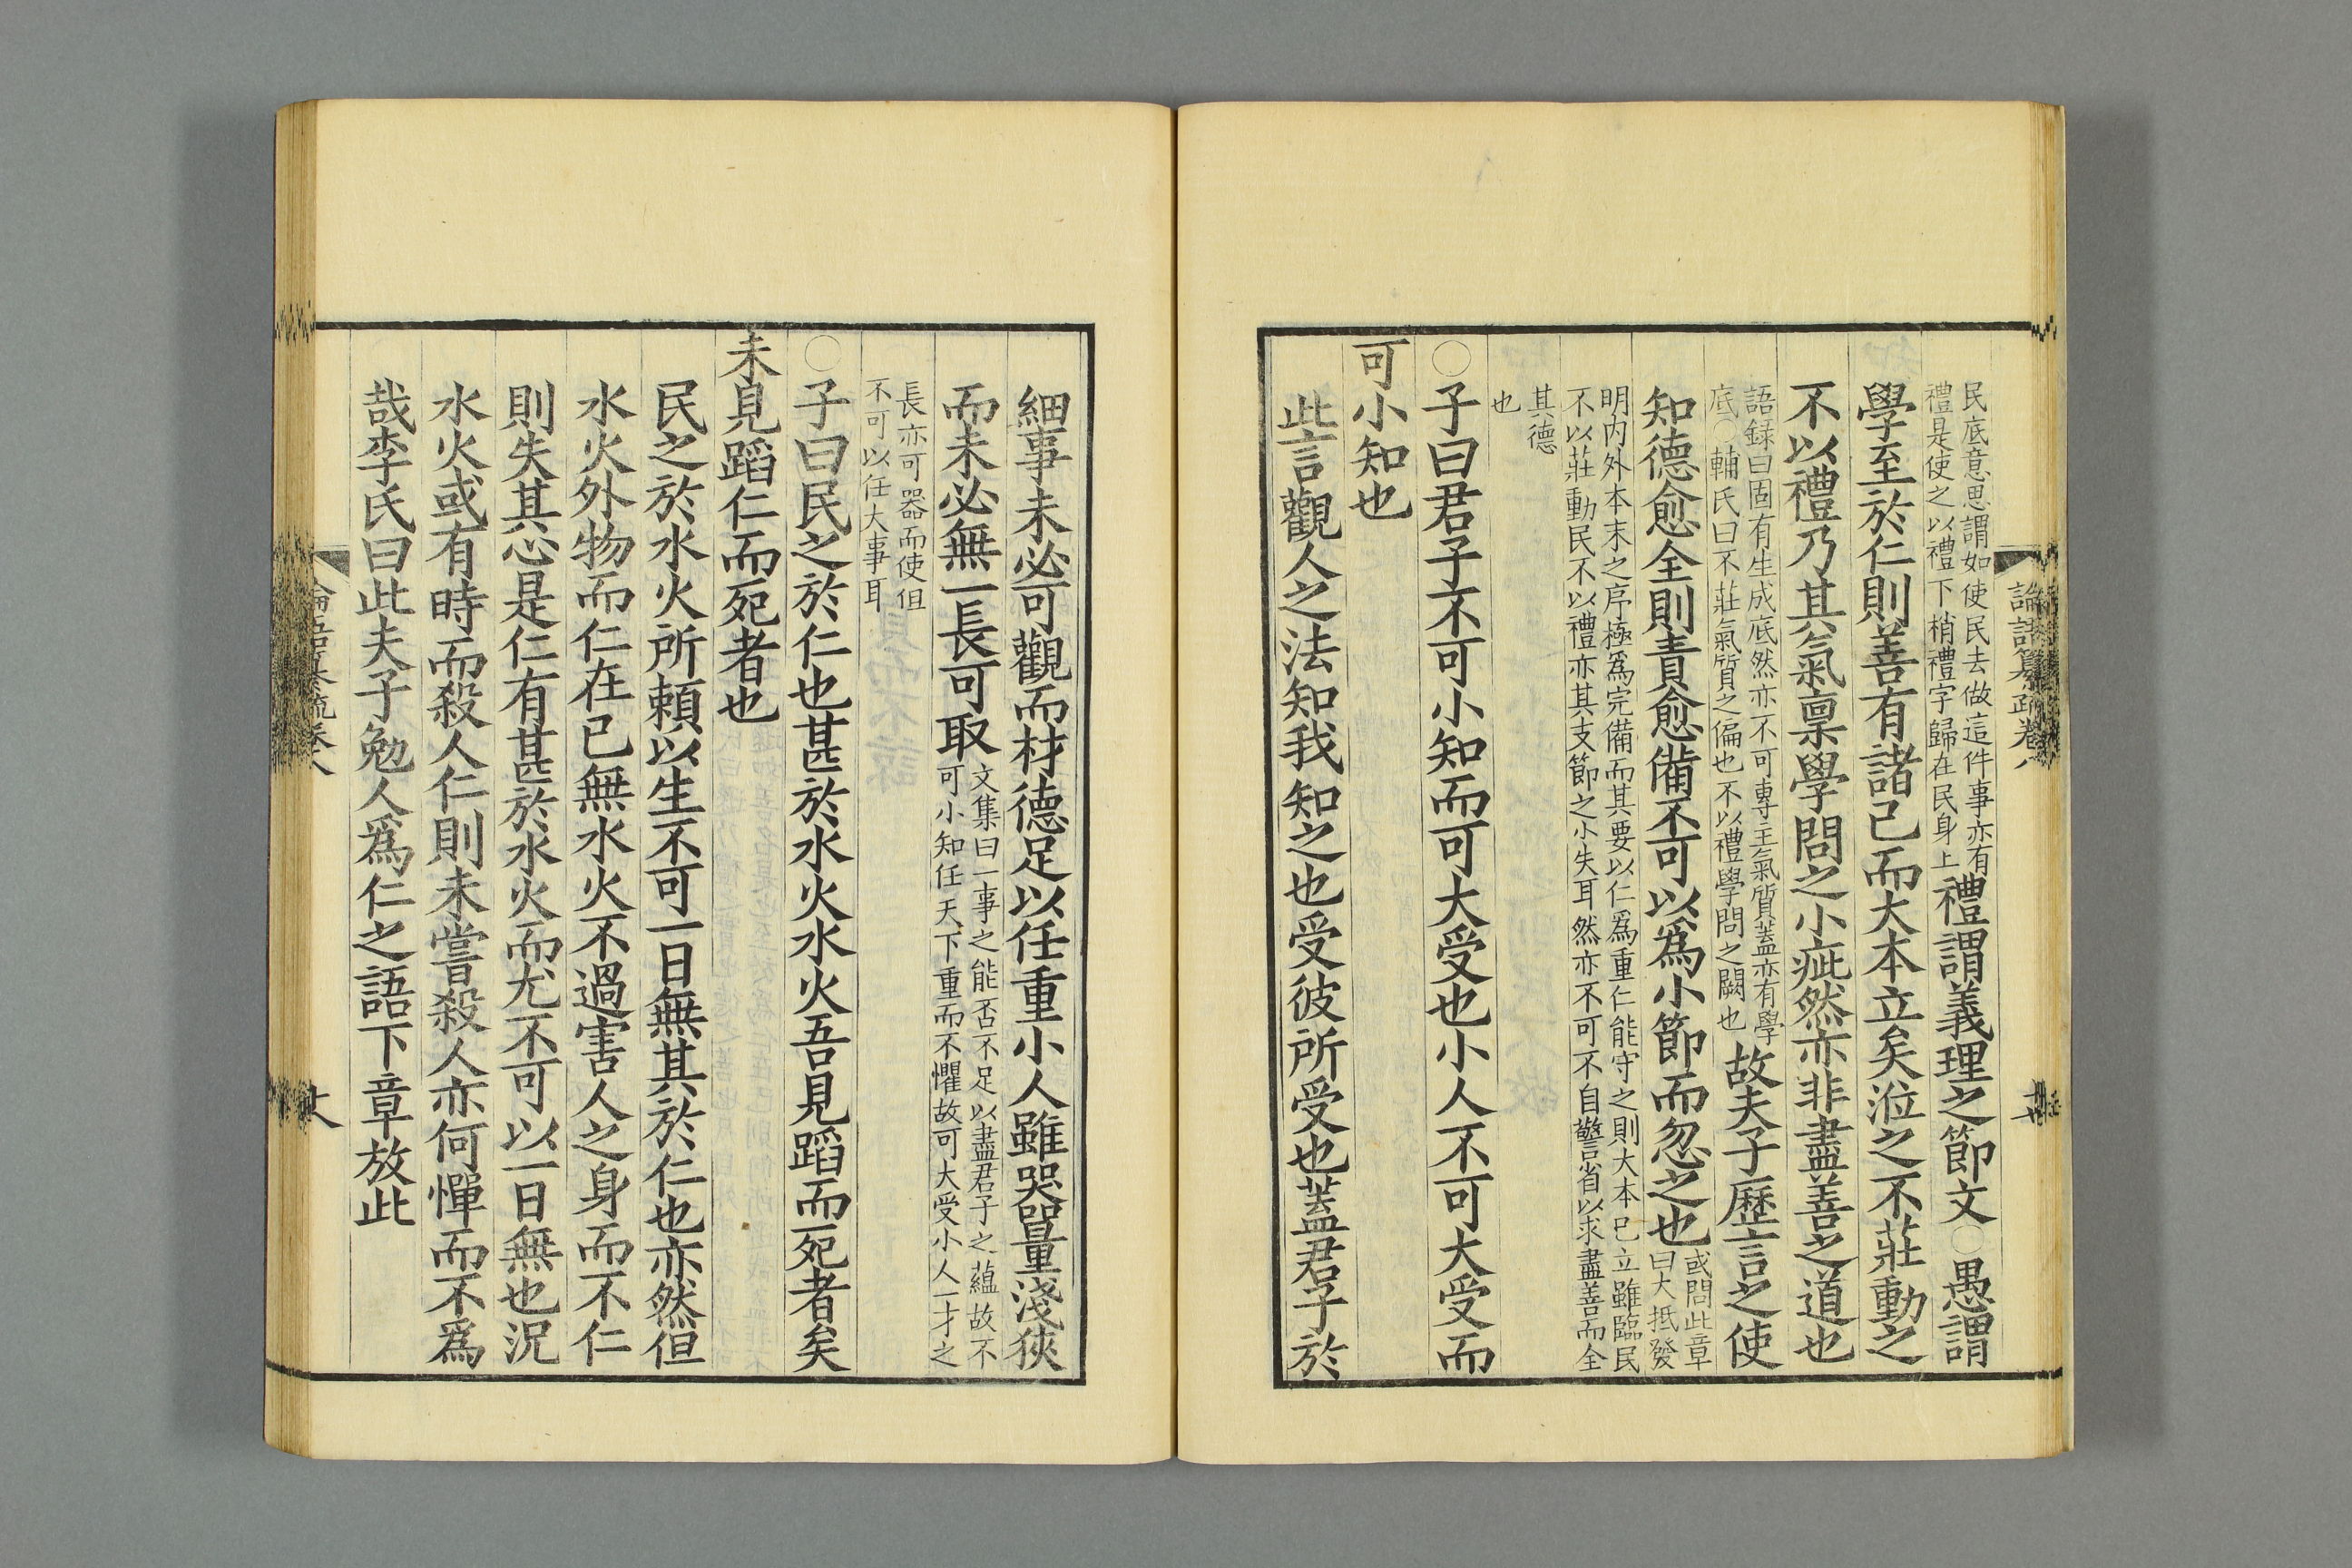 民底意思謂如使民去做這件事亦有
禮是使之以禮下梢禮字歸在民身上
禮謂義理之節文○愚謂
學至於仁則善有諸己而大本立矣涖之不莊動之
不以禮乃其氣稟學問之小疵然亦非盡善之道也
語録曰固有生成底然亦不可專主氣質蓋亦有學
底○輔氏曰不莊氣質之偏也不以禮學問之闕也
故夫子歷言之使
知德愈全則責愈備不可以爲小節而忽之也
或問此章
曰大抵發
明内外本末之序極爲完備而其要以仁爲重仁能守之則大本已立雖臨民
不以莊動民不以禮亦其支節之小失耳然亦不可不自警省以求盡善而全
其德
也
○子曰君子不可小知而可大受也小人不可大受而
可小知也
此言觀人之法知我知之也受彼所受也蓋君子於
論語纂疏卷八
細事未必可觀而材德足以任重小人雖器量淺狹
而未必無一長可取
文集曰一事之能否不足以盡君子之蘊故不
可小知任天下重而不懼故可大受小人一才之
長亦可器而使但
不可以任大事耳
○子曰民之於仁也甚於水火水火吾見蹈而死者矣
未見蹈仁而死者也
民之於水火所頼以生不可一日無其於仁也亦然但
水火外物而仁在已無水火不過害人之身而不仁
則失其心是仁有甚於水火而尤不可以一日無也況
水火或有時而殺人仁則未嘗殺人亦何憚而不爲
哉李氏曰此夫子勉人爲仁之語下章放此